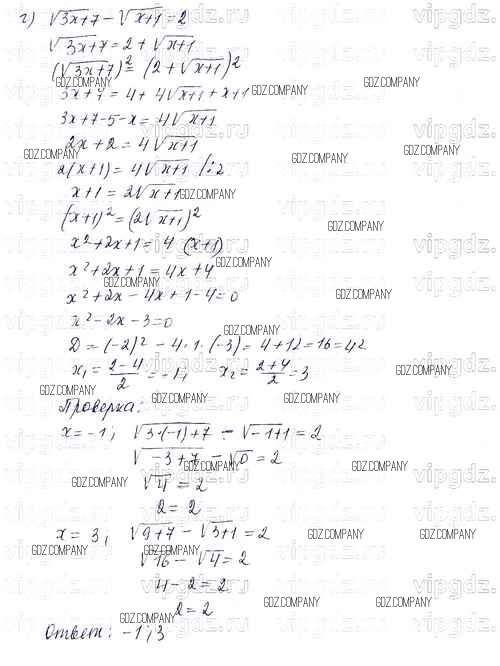 г) √(3x+7) - √(x+1) = 2
√(3x+7) = 2 + √(x+1)
(√(3x+7))² = (2+√(x+1))²
3x+7 = 4 + 4√(x+1) + x+1
3x+7-5-x = 4√(x+1)
2x+2 = 4√(x+1)
2(x+1) = 4√(x+1) /:2
x+1 = 2√(x+1)
(x+1)² = (2√(x+1))²
x²+2x+1 = 4 (x+1)
x²+2x+1 = 4x+4
x²+2x-4x+1-4=0
x²-2x-3=0
D = (-2)² - 4·1·(-3) = 4+12=16=4²
x₁ = (2-4)/2 = -1; x₂ = (2+4)/2 = 3
Проверка:
x = -1; √(3·(-1)+7) - √(-1+1) = 2
√(-3+7) - √0 = 2
√4 = 2
2 = 2
x = 3, √(9+7) - √(3+1) = 2
√16 - √4 = 2
4-2 = 2
2=2
Ответ: -1; 3
GDZ.COMPANY
vipgdz.ru